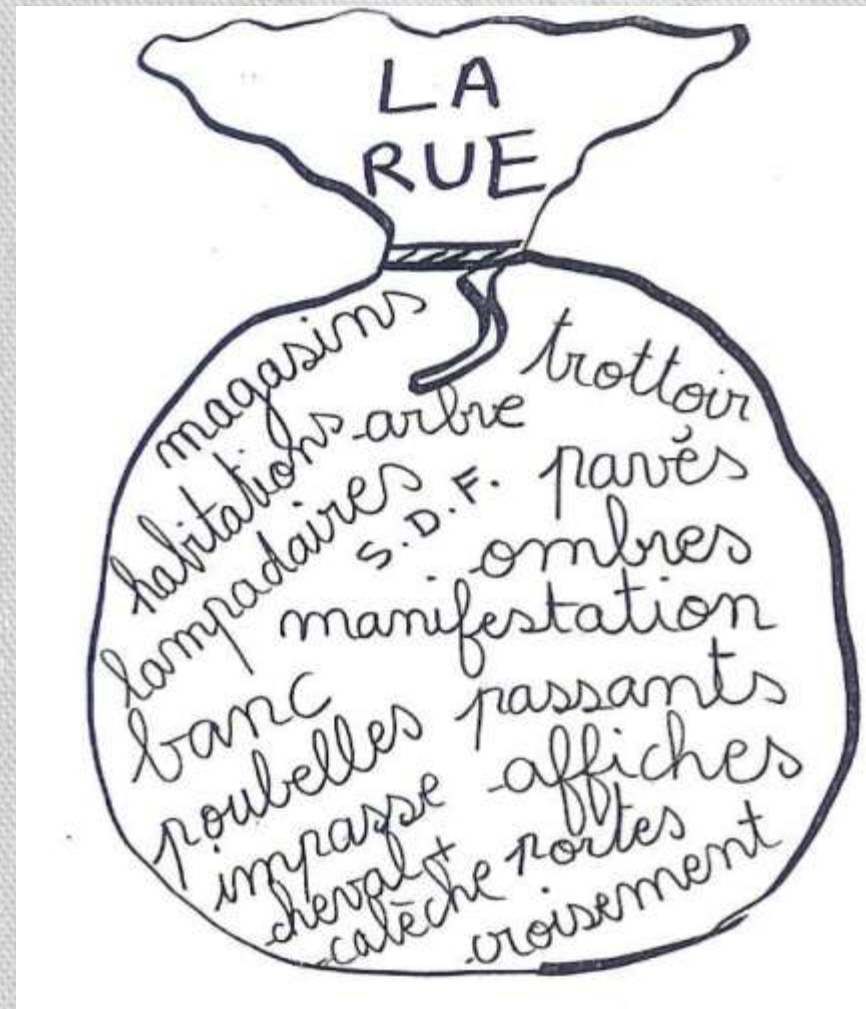 LA
RUE
magasins
trottoir
habitations
arbre
lampadaires
S.D.F.
pavés
ombres
manifestation
banc
passants
poubelles
affiches
impasse
cheval +
calèche
portes
croisement